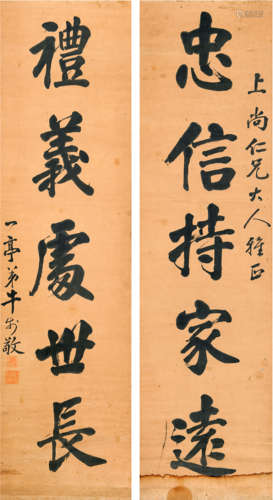 上尚仁兄大人雅正
忠信持家遠
禮義處世長
一亭弟牛
敬